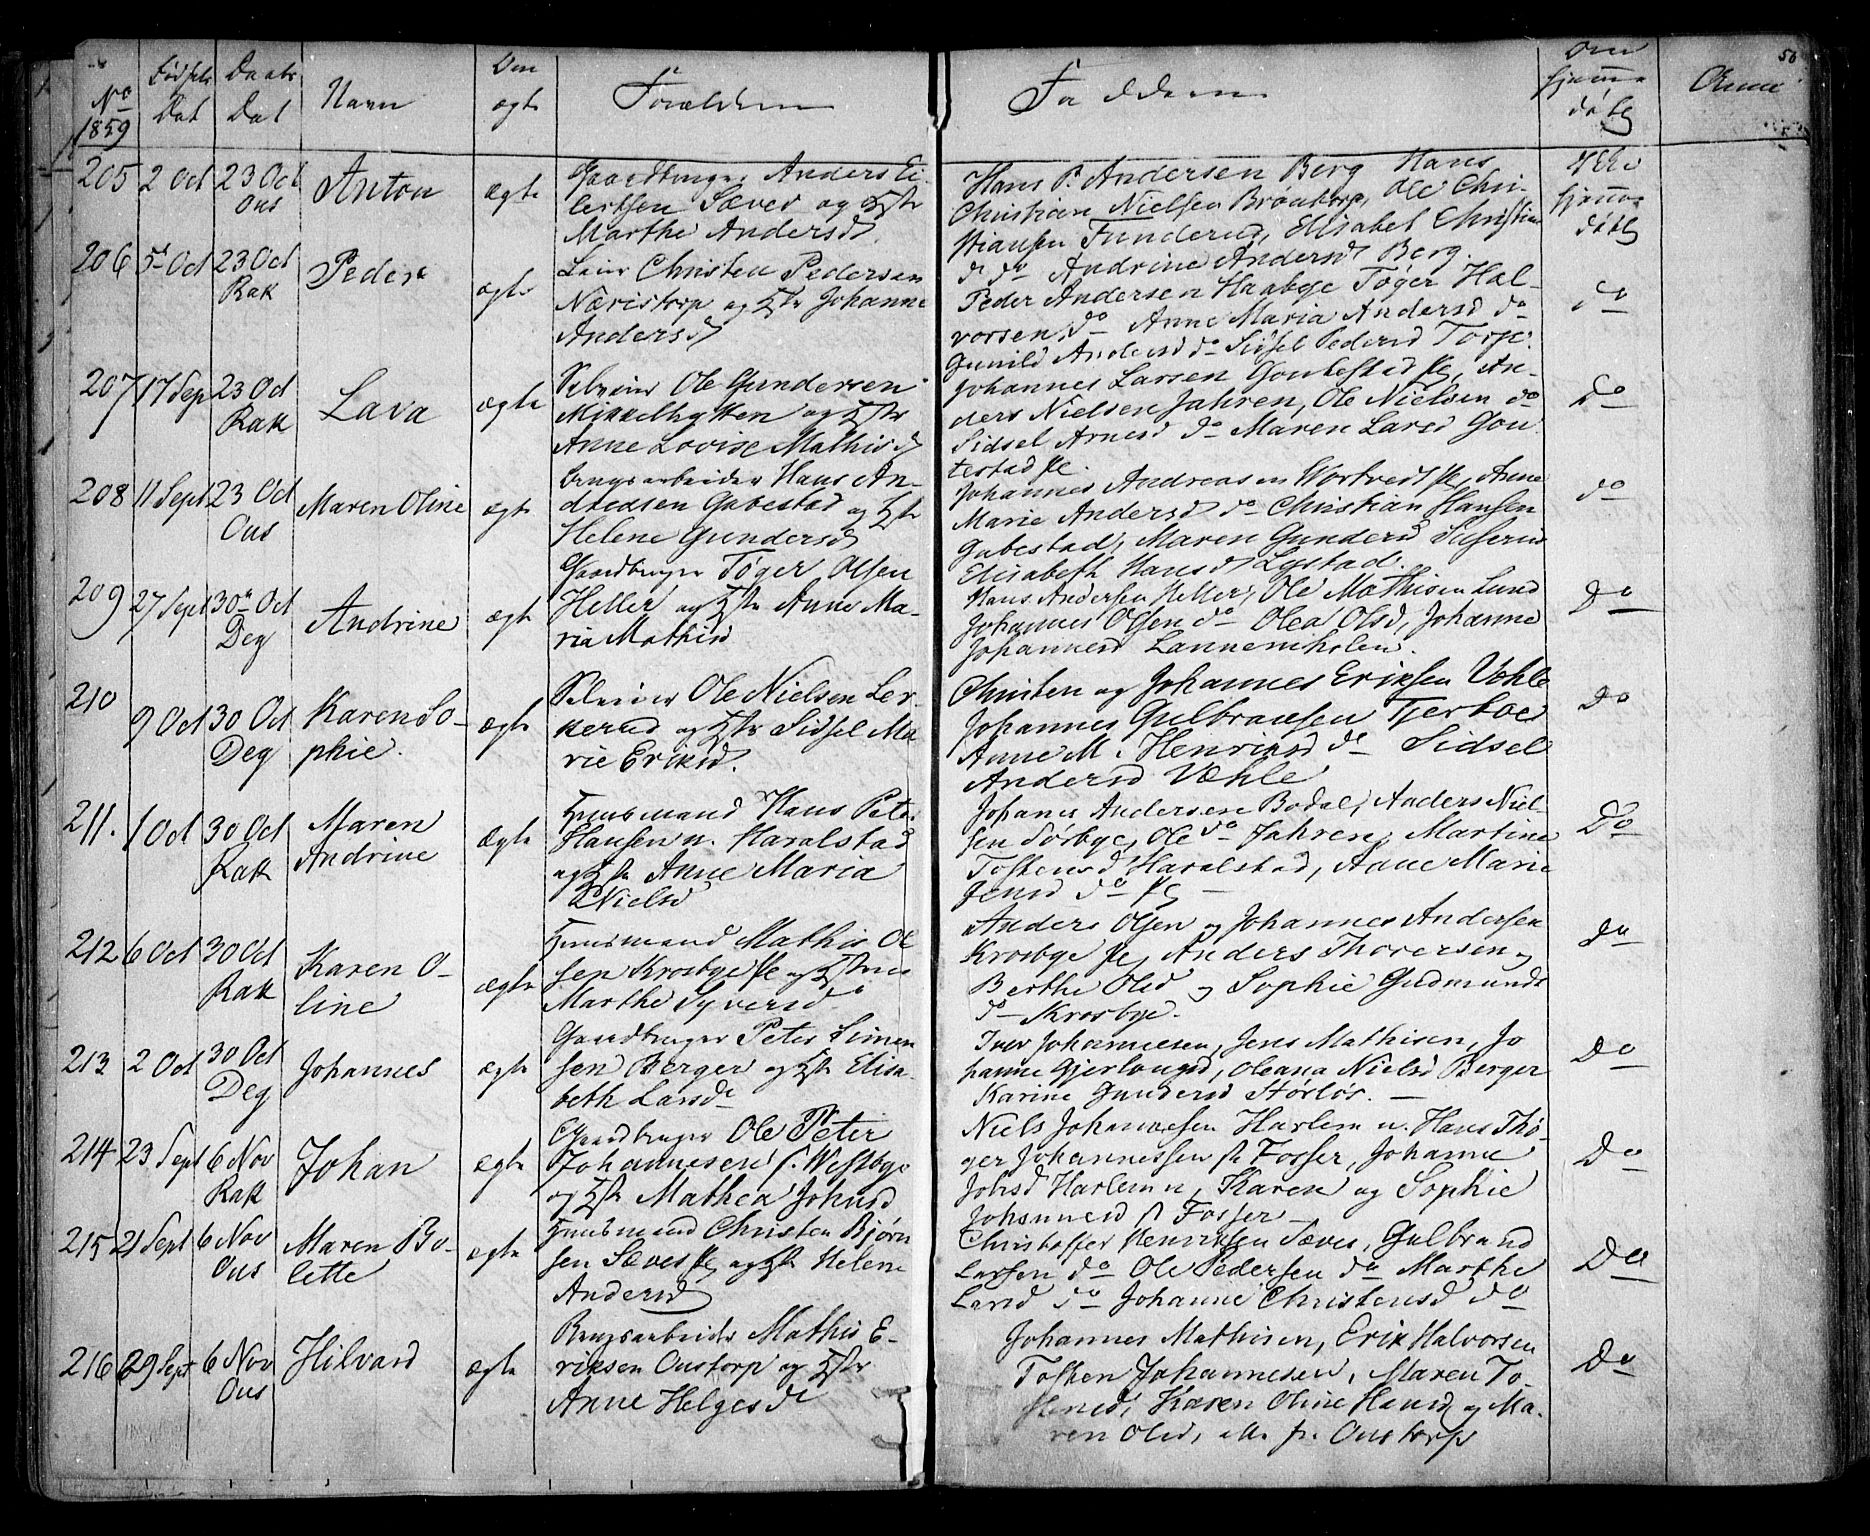 No 1859
Fødsels Dat
Daabs Dat
Navn
Om ægte
Forældrene
Fadderne
Om hjemmedøbt
Anm
50
205
2 Oct
23 Oct Ous
Anton
ægte
Gaardbruger Anders Ei-
lertsen Sæves og Hstr
Marthe Andersd
Hans P. Andersen Berg Hans
Christian Nielsen Brøntorp, Ole Chri-
stiansen Funderud, Elisabet Christians
d do Andrine Andersd Berg.
Ikke hjemmedøbt
206
5 Oct
23 Oct Rak
Peder
ægte
Leier Christen Pedersen
Næristorp og Hstr Johanne
Andersd
Peder Andersen Haabye Tøger Hal-
vorsen do Anne Maria Andersd do
Gunild Andersd do Sidsel Pedersd Torpe.
do
207
17 Sep
23 Oct Rak
Lava
ægte
Selveier Ole Gundersen
Mikkelhytten og Hstr
Anne Lovise Mathisd
Johannes Larsen Goutestad pe, An-
ders Nielsen Jahren, Ole Nielsen do
Sidsel Arnesd do Maren Larsd Gou
testad pe.
Do
208
11 Sept
23 Oct Ous
Maren Oline
ægte
Brugsarbeider Hans An-
dreasen Gabestad og Hstr
Helene Gundersd
Johannes Andreasen Wortvedt pe, Anne
Marie Andersd do Christian Hansen
Gabestad, Maren Gundersd
Elisabeth Hansd Lystad.
do
209
27 Sept
30 Oct Deg
Andrine
ægte
Gaardbruger Tøger Olsen
Heller og Hstr Anne Ma-
ria Mathisd
Hans Andersen Heller, Ole Mathisen Lund
Johannes Olsen do Olea Olsd, Johanne
Johannesd
Do
210
9 Oct
30 Oct Deg
Karen So-
phie.
ægte
Selveier Ole Nielsen Ler-
kerud og Hstr Sidsel Ma
rie Eriksd.
Christen og Johannes Eriksen Væhle
Johannes Gulbransen Tjerboe
Anne M. Henriksd do Sidsel
Andersd Væhle
Do
211.
1 Oct
30 Oct Rak
Maren
Andrine
Ægte
Huusmand Hans Peter
Hansen u. Haralstad
og Hstr Anne Maria
Nielsd
Johanes Andersen Bodal, Anders Niel-
sen Sørbye, Ole do Jahren, Martine
Tostensd Haralstad, Anne Marie
Jensd do pe
Do
212
6 Oct
30 Oct Rak
Karen O-
line
ægte
Huusmand Mathis Ol
sen Krosbye pe og Hstr
Marthe Syversd
Anders Olsen og Johannes Andersen
Krosbye pe, Anders Thoresen og
Berthe Olsd og Sophie Gudmunds
d Krosbye.
do
213
2 Oct
30 Oct Deg
Johannes
ægte
Gaardbruger Peter Simen
sen Berger og Hstr Elisa-
beth Larsd
Iver Johannesen, Jens Mathisen, Jo
hanne Gjerlougsd, Oleana Nielsd Berger
Karine Gundersd Størlør.
Do
214
23 Sept
6 Nov Rak
Johan
ægte
Gaardbruger Ole Peter
Johannesen s. Westbye
og Hstr Mathea Johnsd
Niels Johannesen Harlem n. Hans Thø-
ger Johannessen pe Fosser, Johanne
Johsd Harlem n, Karen og Sophie
Johannesd pe Fosser
Do
215
21 Sept
6 Nov Ous
Maren Bo-
lette
ægte
Huusmand Christen Bjørn
sen Sæves pe, og Hstr Helene
Andersd
Christoffer Henriksen Sæves, Gulbrand
Larsen do Ole Pedersen do Marthe
Larsd do Johanne Christensd do
Do
216
29 Sept
6 Nov Ous
Hilvard
ægte
Brugsarbeider Mathis E-
riksen Oustorp og Hstr
Anne Helgesd
Johannes Mathisen, Erik Halvorsen
Tosten Johannesen, Maren To-
stensd, Karen Oline Hansd og Ma-
ren Olsd, alle fr. Oustorp
Do